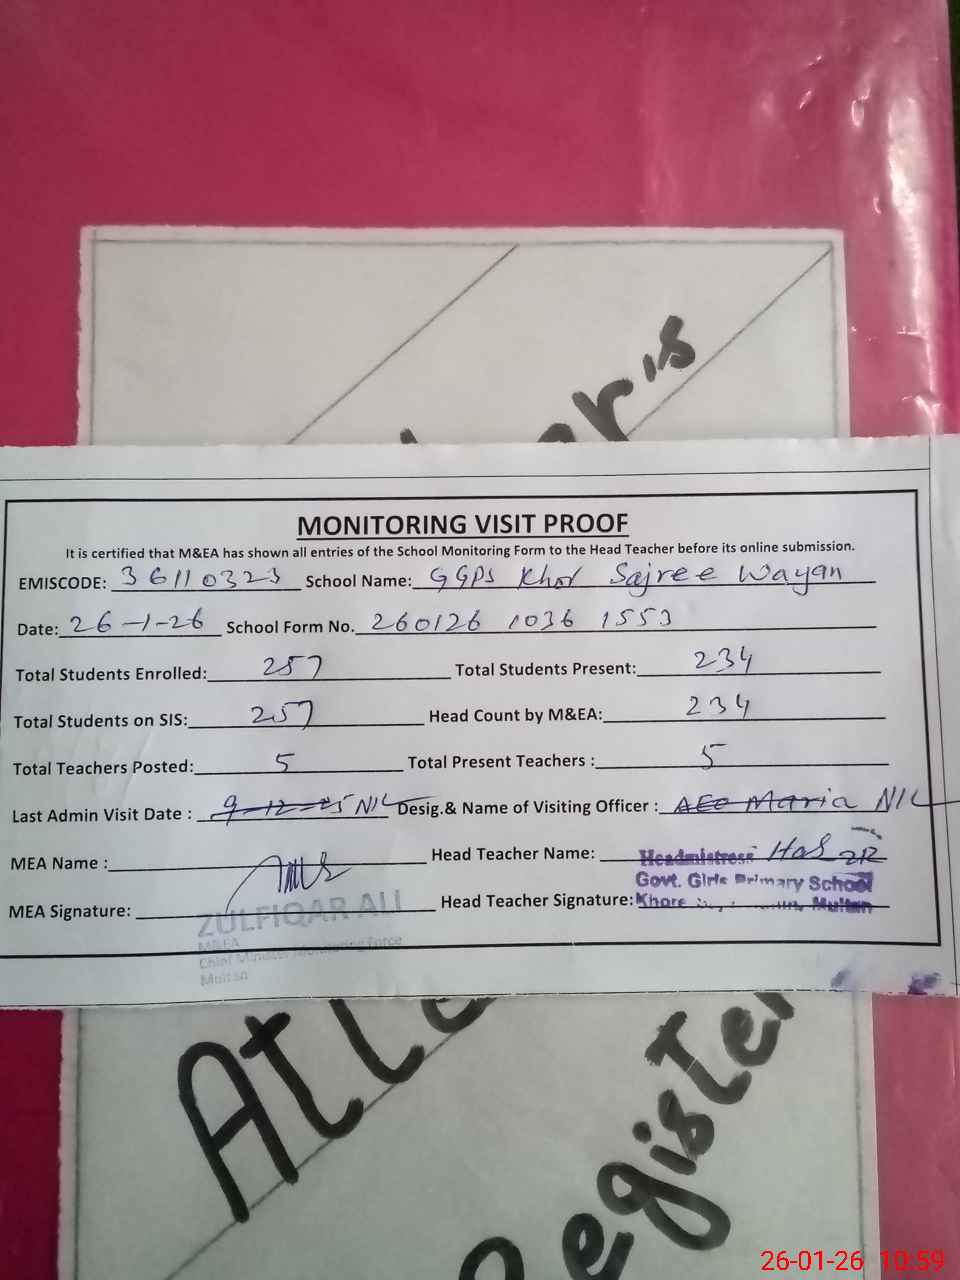 er's
MONITORING VISIT PROOF
It is certified that M&EA has shown all entries of the School Monitoring Form to the Head Teacher before its online submission.
EMISCODE: 36110323 School Name: GGPS Khor Sajree Wayan
Date: 26-1-26 School Form No. 260126 1036 1553
Total Students Enrolled: 257 Total Students Present: 234
Total Students on SIS: 257 Head Count by M&EA: 234
Total Teachers Posted: 5 Total Present Teachers : 5
Last Admin Visit Date : 9-12-25 NIL Desig.& Name of Visiting Officer : AEO Maria NIL
MEA Name : Head Teacher Name: Headmistress
Govt. Girls Primary School
MEA Signature: Head Teacher Signature: Khore Multan
ZULFIQAR ALI
M&EA
Chief Minister Monitoring Force
Multan
Atte
Register
26-01-26 10:59